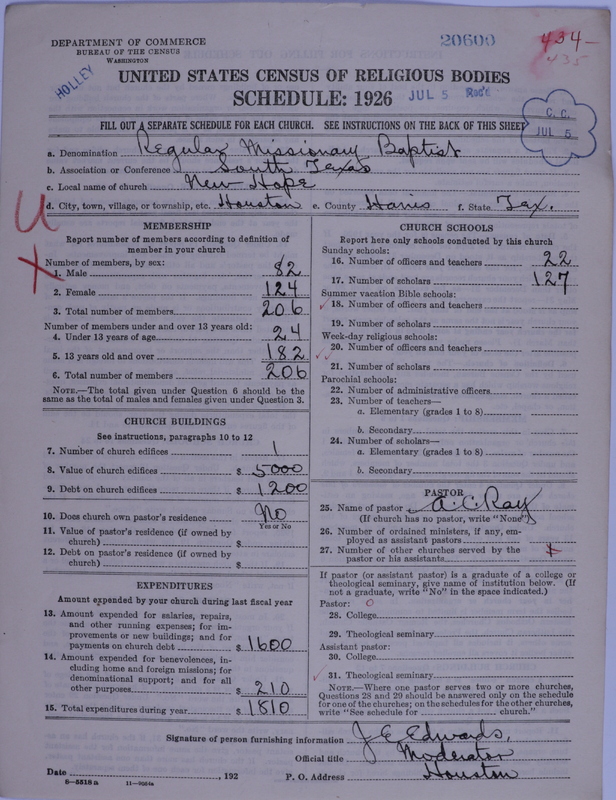 DEPARTMENT OF COMMERCE
BUREAU OF THE CENSUS
WASHINGTON
HOLLEY
20600
434-
435
UNITED STATES CENSUS OF RELIGIOUS BODIES
SCHEDULE: 1926
JUL 5 Rec'd
C. C.
JUL 5
FILL OUT A SEPARATE SCHEDULE FOR EACH CHURCH. SEE INSTRUCTIONS ON THE BACK OF THIS SHEET
a. Denomination Regular Missionary Baptist
b. Association or Conference South Texas
c. Local name of church New Hope
d. City, town, village, or township, etc. Houston e. County Harris f. State Tex.
U
X
MEMBERSHIP
Report number of members according to definition of
member in your church
Number of members, by sex:
1. Male 82
2. Female 124
3. Total number of members 206
Number of members under and over 13 years old:
4. Under 13 years of age 24
5. 13 years old and over 182
6. Total number of members 206
NOTE.—The total given under Question 6 should be the
same as the total of males and females given under Question 3.
CHURCH BUILDINGS
See instructions, paragraphs 10 to 12
7. Number of church edifices 1
8. Value of church edifices $ 5000
9. Debt on church edifices $ 1200
10. Does church own pastor's residence No
Yes or No
11. Value of pastor's residence (if owned by
church) $
12. Debt on pastor's residence (if owned by
church) $
EXPENDITURES
Amount expended by your church during last fiscal year
13. Amount expended for salaries, repairs,
and other running expenses; for im-
provements or new buildings; and for
payments on church debt $ 1600
14. Amount expended for benevolences, in-
cluding home and foreign missions; for
denominational support; and for all
other purposes $ 210
15. Total expenditures during year $ 1810
CHURCH SCHOOLS
Report here only schools conducted by this church
Sunday schools:
16. Number of officers and teachers 22
17. Number of scholars 127
Summer vacation Bible schools:
18. Number of officers and teachers
19. Number of scholars
Week-day religious schools:
20. Number of officers and teachers
21. Number of scholars
Parochial schools:
22. Number of administrative officers
23. Number of teachers—
a. Elementary (grades 1 to 8)
b. Secondary
24. Number of scholars—
a. Elementary (grades 1 to 8)
b. Secondary
PASTOR
25. Name of pastor A. C. Ray
(If church has no pastor, write "None")
26. Number of ordained ministers, if any, em-
ployed as assistant pastors
27. Number of other churches served by the
pastor or his assistants
If pastor (or assistant pastor) is a graduate of a college or
theological seminary, give name of institution below. (If
not a graduate, write "No" in the space indicated.)
Pastor: 0
28. College
29. Theological seminary
Assistant pastor:
30. College
31. Theological seminary
NOTE.—Where one pastor serves two or more churches,
Questions 28 and 29 should be answered only on the schedule
for one of the churches; on the schedules for the other churches,
write "See schedule for church."
Signature of person furnishing information J. E. Edwards,
Official title Moderator
Date , 192 P. O. Address Houston
8—5518 a 11—9054a